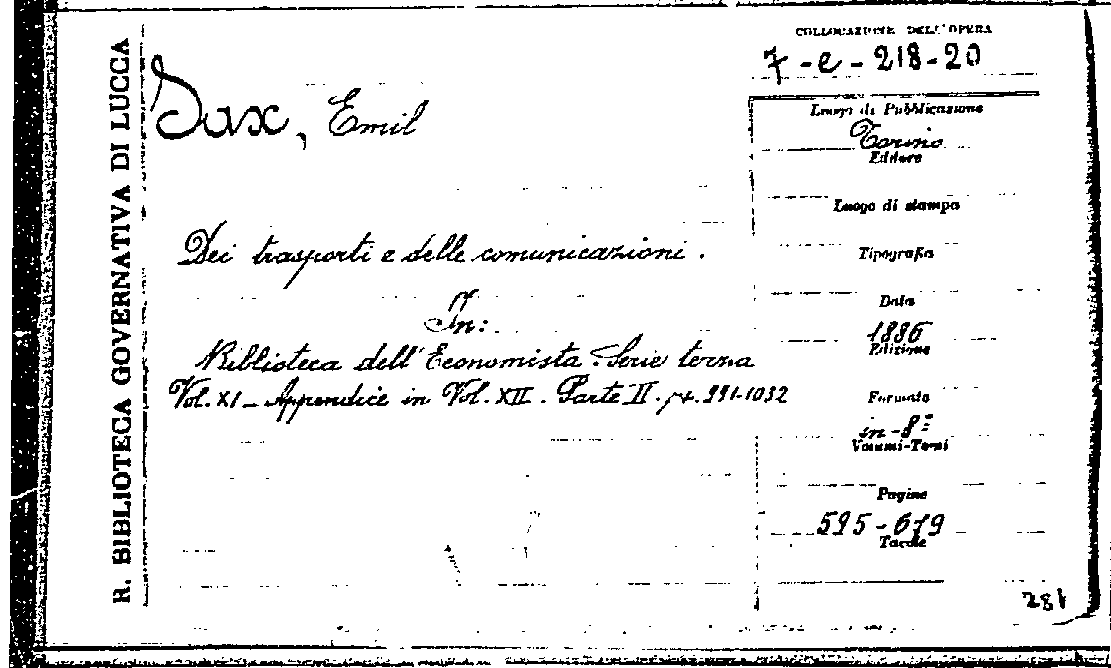 R. BIBLIOTECA GOVERNATIVA DI LUCCA
COLLOCAZIONE DELL'OPERA
7-e-218-20
Sax, Emil
Dei trasporti e delle comunicazioni.
In:
Biblioteca dell'Economista. Serie terza
Vol. XI - Appendice in Vol. XII. Parte II. pp. 991-1032
Luogo di Pubblicazione
Torino
Editore
Luogo di stampa
Tipografia
Data
1886
Edizione
Formato
in-8º
Volumi-Tomi
Pagine
595-679
Tavole
281